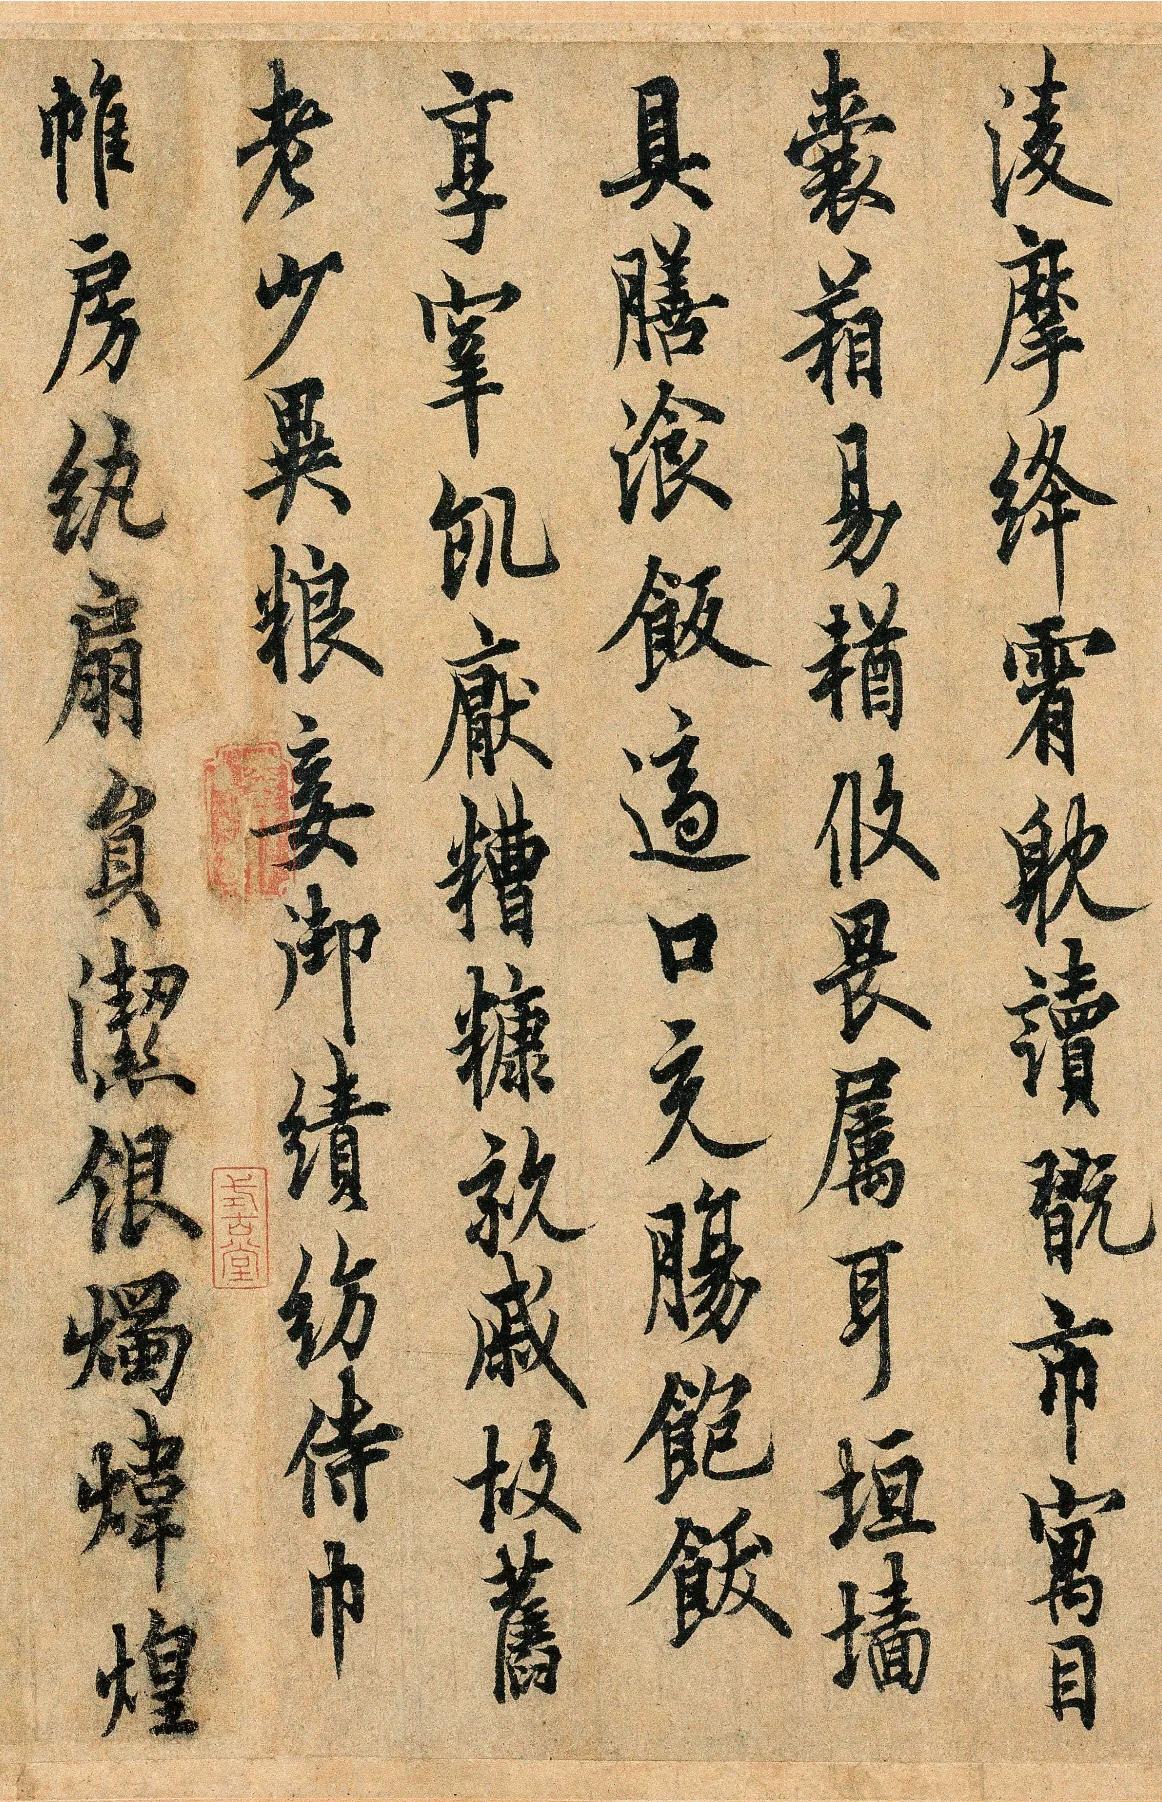 淩摩絳霄耽讀翫市寓目
囊箱易輶攸畏屬耳垣墻
具膳湌飯適口充腸飽飫
享宰飢厭糟糠親戚故舊
老少異粮妾御績紡侍巾
帷房紈扇員潔銀燭煒煌
式古堂